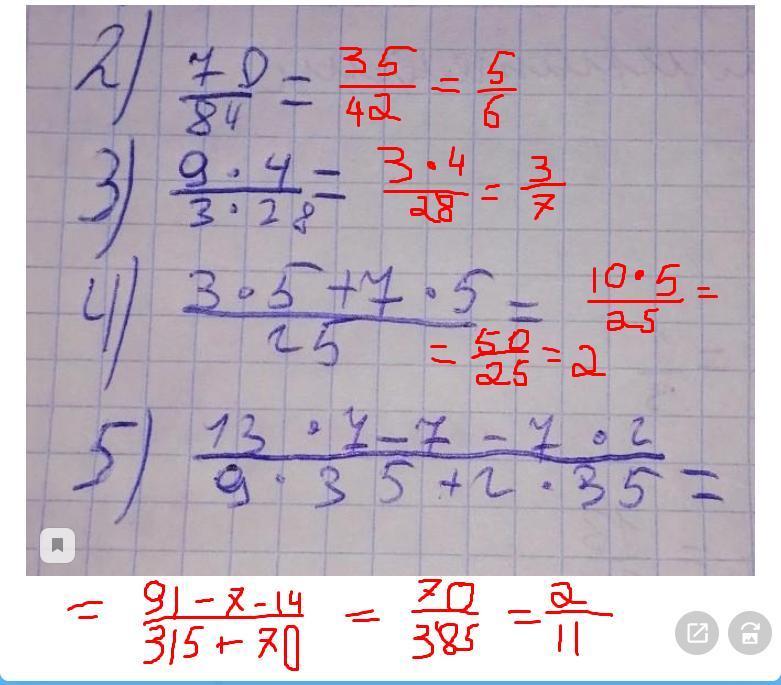 2) 70/84 = 35/42 = 5/6
3) 9·4/3·28 = 3·4/28 = 3/7
4) 3·5+7·5/25 = 10·5/25 =
= 50/25 = 2
5) 13·7-7-7·2/9·35+2·35 =
= 91-7-14/315+70 = 70/385 = 2/11